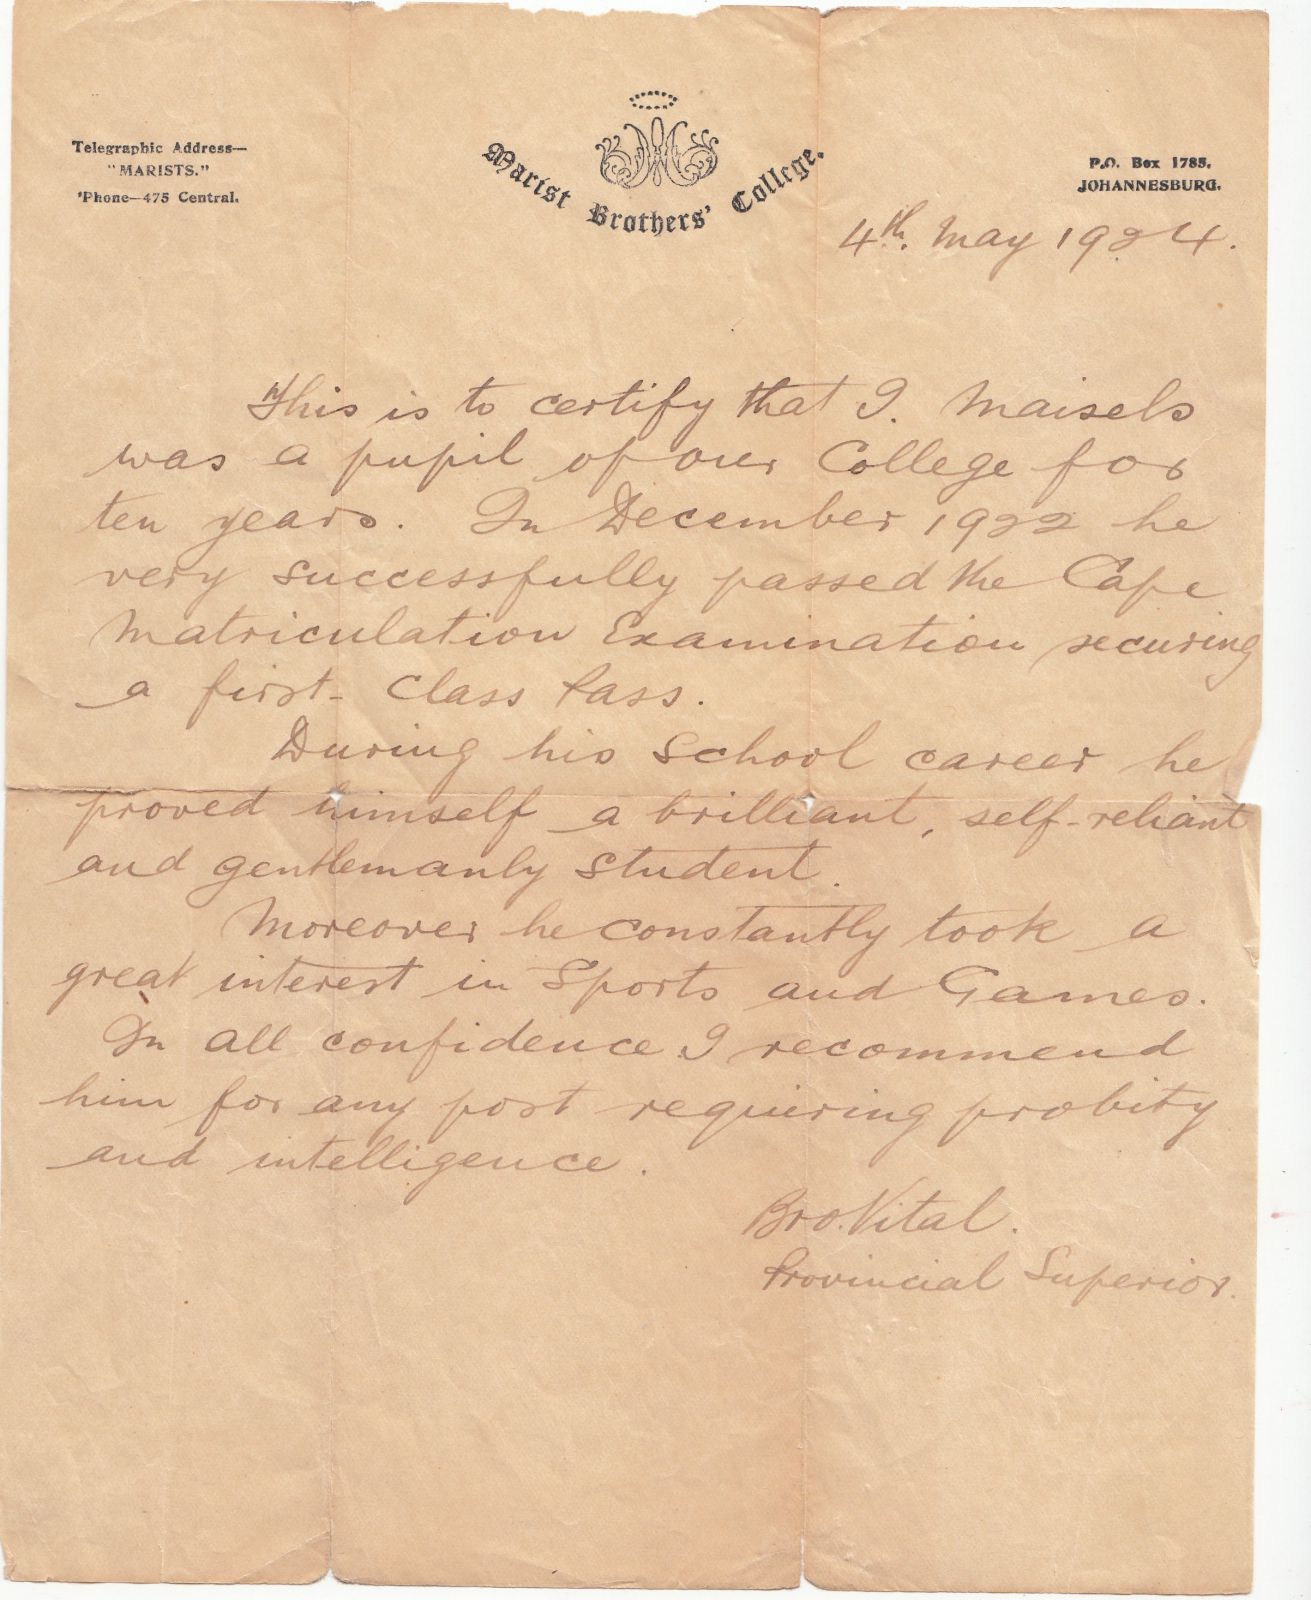 Telegraphic Address—
"MARISTS."
'Phone—475 Central.
Marist Brothers' College.
P.O. Box 1785,
JOHANNESBURG.
4th. May 1924.
This is to certify that I. Maisels
was a pupil of our College for
ten years. In December 1922 he
very successfully passed the Cape
Matriculation Examination securing
a first-Class Pass.
During his School career he
proved himself a brilliant, self-reliant
and gentlemanly student.
Moreover he constantly took a
great interest in Sports and Games.
In all confidence I recommend
him for any post requiring probity
and intelligence.
Bro. Vital.
Provincial Superior.